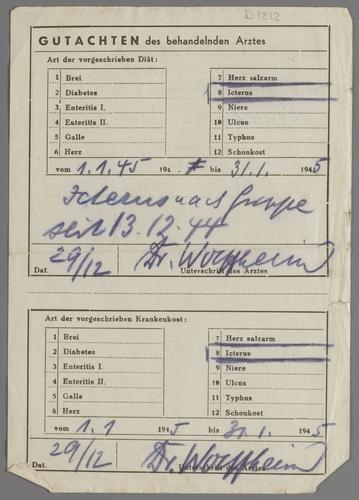 D1212
GUTACHTEN des behandelnden Arztes
Art der vorgeschrieben Diät:
1 Brei
2 Diabetes
3 Enteritis I.
4 Enteritis II.
5 Galle
6 Herz
7 Herz salzarm
8 Icterus
9 Niere
10 Ulcus
11 Typhus
12 Schonkost
vom 1.1.45 194 bis 31.1. 1945
Icterus nach Grippe
seit 13.12.44
29/12 Dr. Wolffheim
Dat. Unterschrift des Arztes
Art der vorgeschrieben Krankenkost:
1 Brei
2 Diabetes
3 Enteritis I.
4 Enteritis II.
5 Galle
6 Herz
7 Herz salzarm
8 Icterus
9 Niere
10 Ulcus
11 Typhus
12 Schonkost
vom 1.1 1945 bis 31.1. 1945
29/12 Dr. Wolffheim
Dat. Unterschrift des Arztes